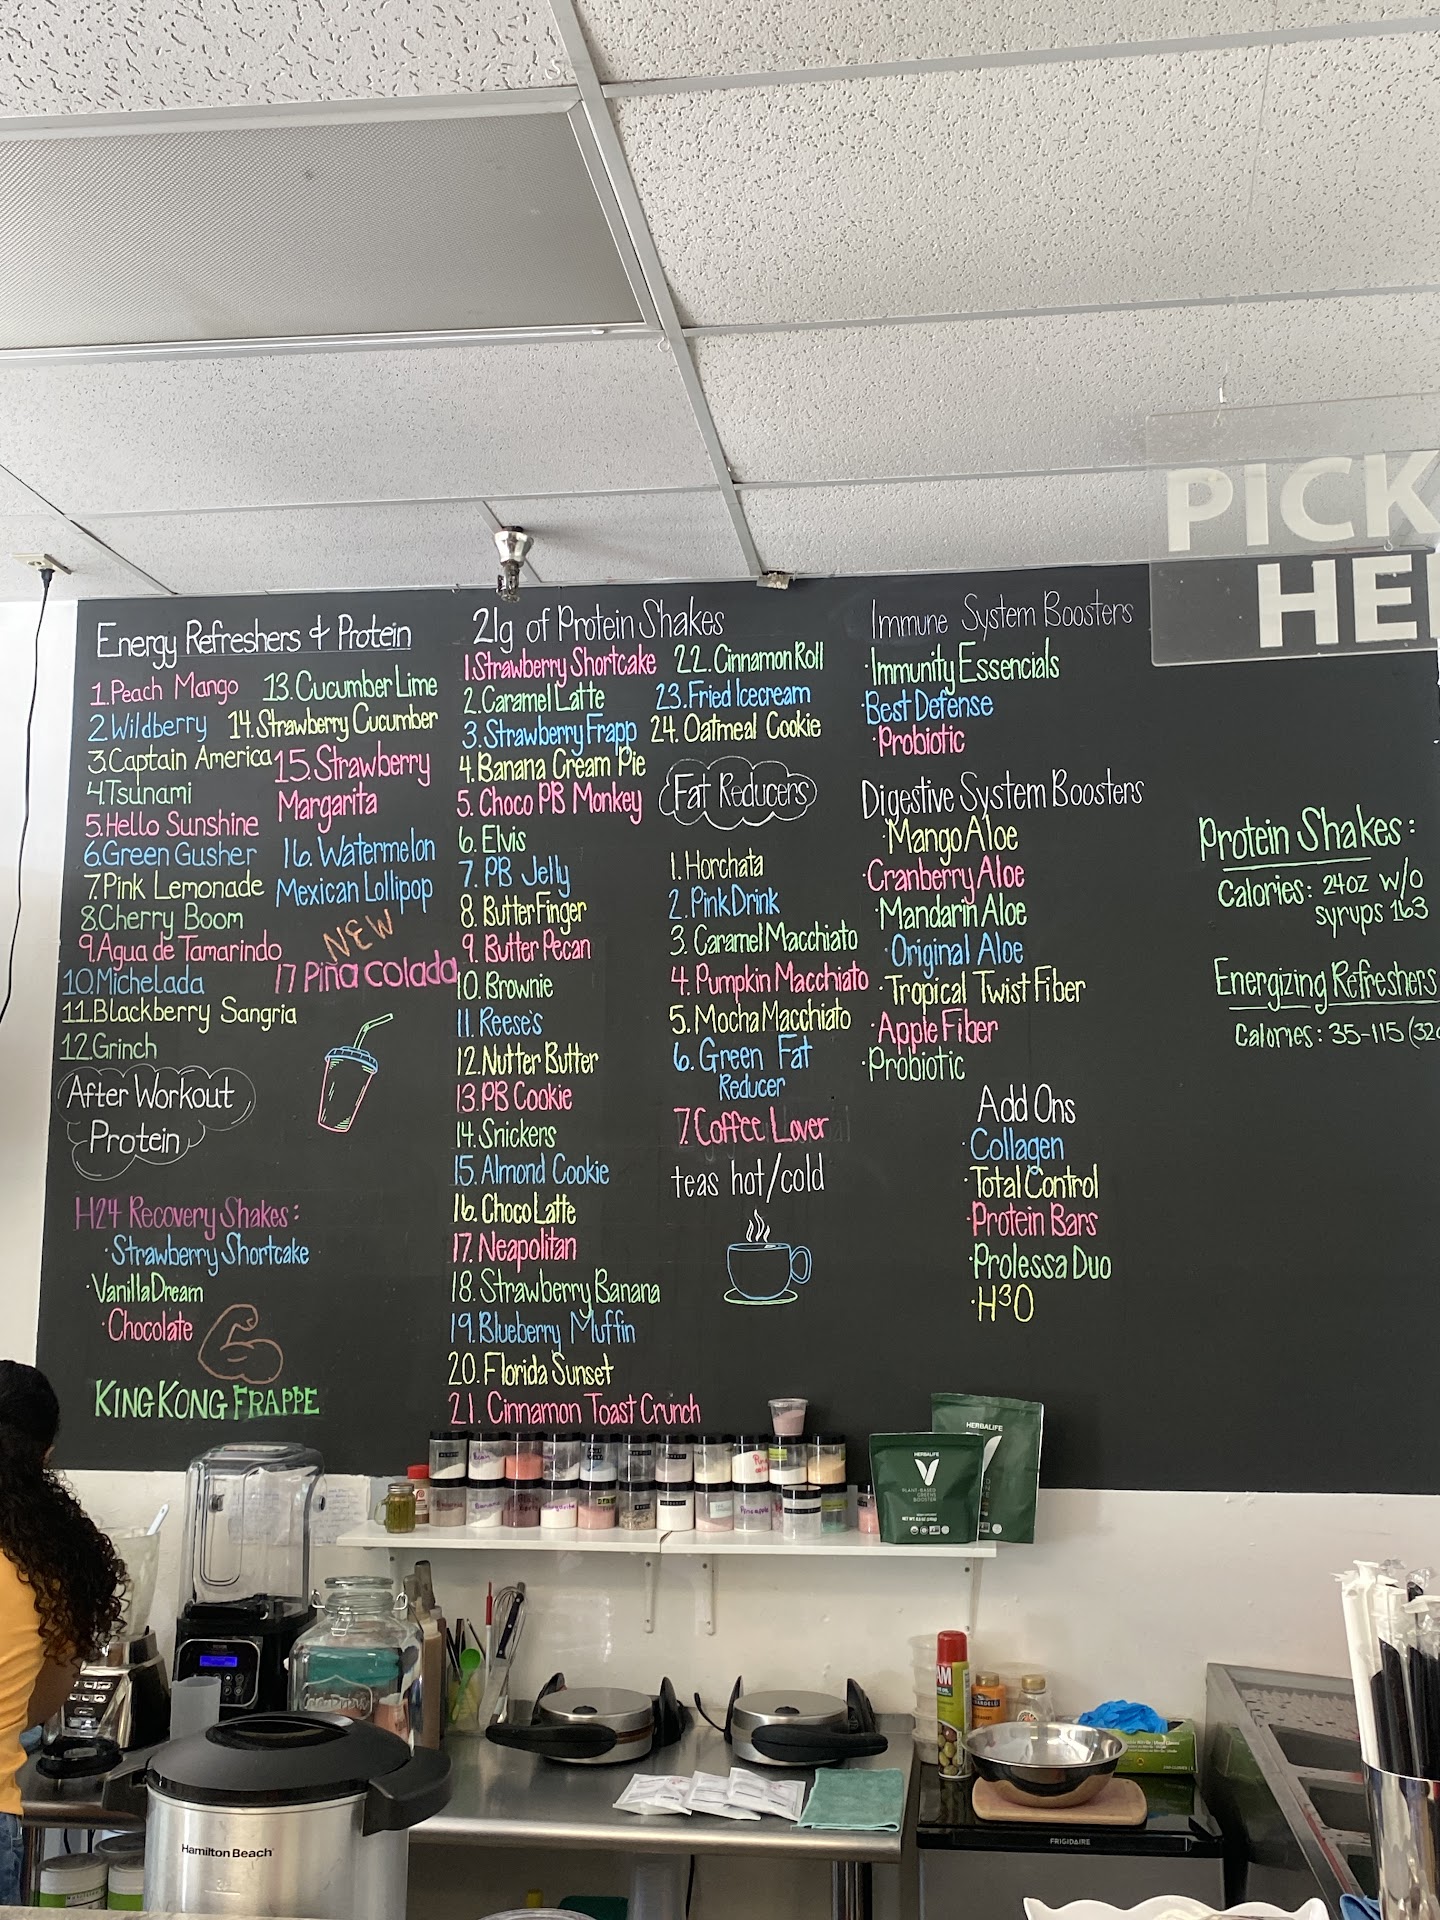 PICK
HE
Energy Refreshers & Protein
1.Peach Mango
2.Wildberry
3.Captain America
4.Tsunami
5.Hello Sunshine
6.Green Gusher
7.Pink Lemonade
8.Cherry Boom
9.Agua de Tamarindo
10.Michelada
11.Blackberry Sangria
12.Grinch
13.Cucumber Lime
14.Strawberry Cucumber
15.Strawberry
Margarita
16. Watermelon
Mexican Lollipop
NEW
17 Piña colada
After Workout
Protein
H24 Recovery Shakes:
·Strawberry Shortcake
·Vanilla Dream
·Chocolate
KING KONG FRAPPE
21g of Protein Shakes
1.Strawberry Shortcake
2.Caramel Latte
3.Strawberry Frapp
4.Banana Cream Pie
5. Choco PB Monkey
6. Elvis
7. PB Jelly
8. ButterFinger
9. Butter Pecan
10. Brownie
11. Reese's
12. Nutter Butter
13. PB Cookie
14. Snickers
15. Almond Cookie
16. Choco Latte
17. Neapolitan
18. Strawberry Banana
19. Blueberry Muffin
20. Florida Sunset
21. Cinnamon Toast Crunch
22. Cinnamon Roll
23. Fried Icecream
24. Oatmeal Cookie
Fat Reducers
1. Horchata
2. Pink Drink
3. Caramel Macchiato
4. Pumpkin Macchiato
5. Mocha Macchiato
6. Green Fat
Reducer
7. Coffee Lover
teas hot/cold
Immune System Boosters
·Immunity Essencials
·Best Defense
·Probiotic
Digestive System Boosters
·Mango Aloe
·Cranberry Aloe
·Mandarin Aloe
·Original Aloe
·Tropical Twist Fiber
·Apple Fiber
·Probiotic
Add Ons
·Collagen
·Total Control
·Protein Bars
·Prolessa Duo
·H³O
Protein Shakes:
Calories: 24oz w/o
syrups 163
Energizing Refreshers
Calories: 35-115 (32o
HERBALIFE
HERBALIFE
PLANT-BASED
GREENS
BOOSTER
Pineapple
Hamilton Beach
FRIGIDAIRE